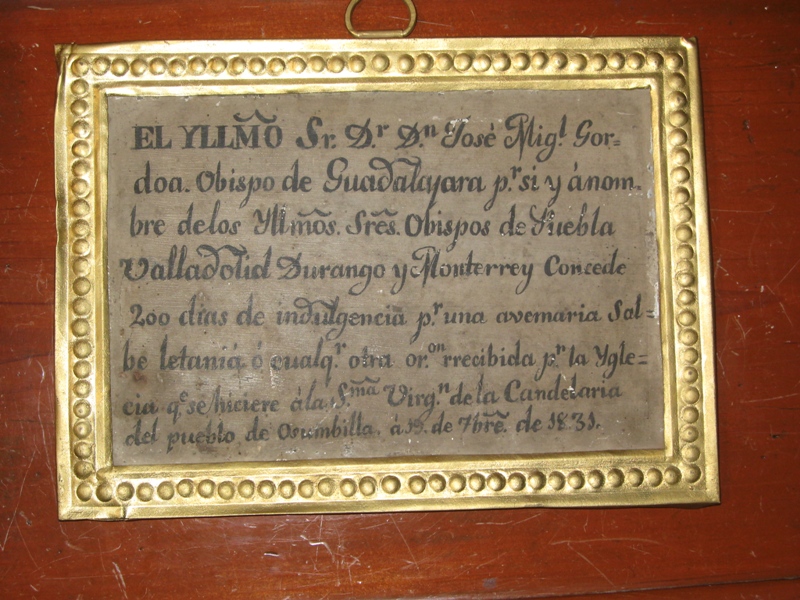 EL YLLM̃O Sr. D.r D.n José Mig.l Gor=
doa. Obispo de Guadalajara p.r si y ánom.
bre delos Yllm̃os. Srẽs. Obispos de Puebla
Valladolid Durango y Monterrey Concede
200 dias de indulgencia p.r una avemaria Sal=
be letania ó cualq.r otra or.on rrecibida p.r la Ygle=
cia q.e se hiciere ála S.ma Virg.n de la Candelaria
del pueblo de Osumbilla. á 19. de 7brẽ. de 1831.